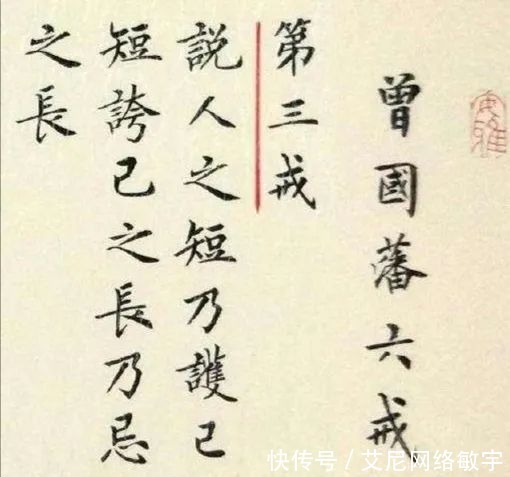 曾國藩六戒
第三戒
説人之短乃護己
短誇己之長乃忌
之長
快传号 / 艾尼网络敏宇